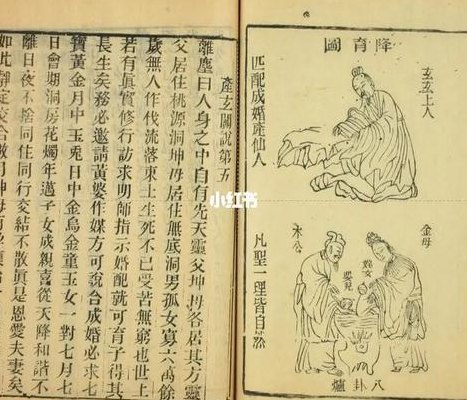 降育圖
玄玄上人
匹配成婚產仙人
金母
姹女
嬰兒
木公
凡聖一理皆自然
八卦爐
產玄圖說第五
離塵曰人身之中自有先天靈父坤母各居其方靈
父居住桃源洞坤母居住無底洞男孤女寡六萬餘
歲無人作伐流落東土生死不已受苦無窮也世上
若有真實修行訪求明師指示婚配就可育子得其
長生矣務必邀請黃婆作媒方可說合成婚必求七
寶黃金月中玉兔日中金烏金童玉女一對七月七
日會期洞房花燭年邁子女成親喜從天降和諧不
離日夜不捨同住同行交結不散真是恩愛夫妻矣
如此靜定交合數月坤母
小红书